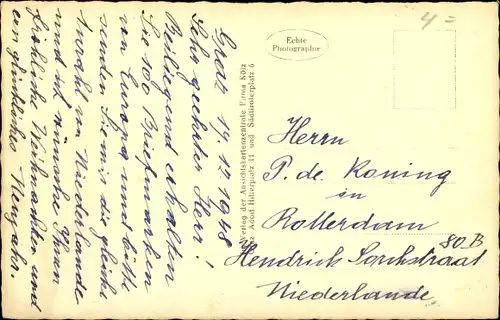 Graz 19.12.1948
Sehr geehrter Herr!
Beiliegend erhalten
Sie 100 Briefmarken
von Europa und bitte
senden Sie mir die gleiche
Anzahl von Niederlande
und ich wünsche Ihnen
fröhliche Weihnachten und
ein glückliches Neujahr.
Verlag der Ansichtskartenzentrale Firma Kölz
Adolf Hitlerplatz 11 und Südtirolerplatz 6
Echte
Photographie
4=
Herrn
P. de Koning
in
Rotterdam
80B
Hendrick
Niederlande